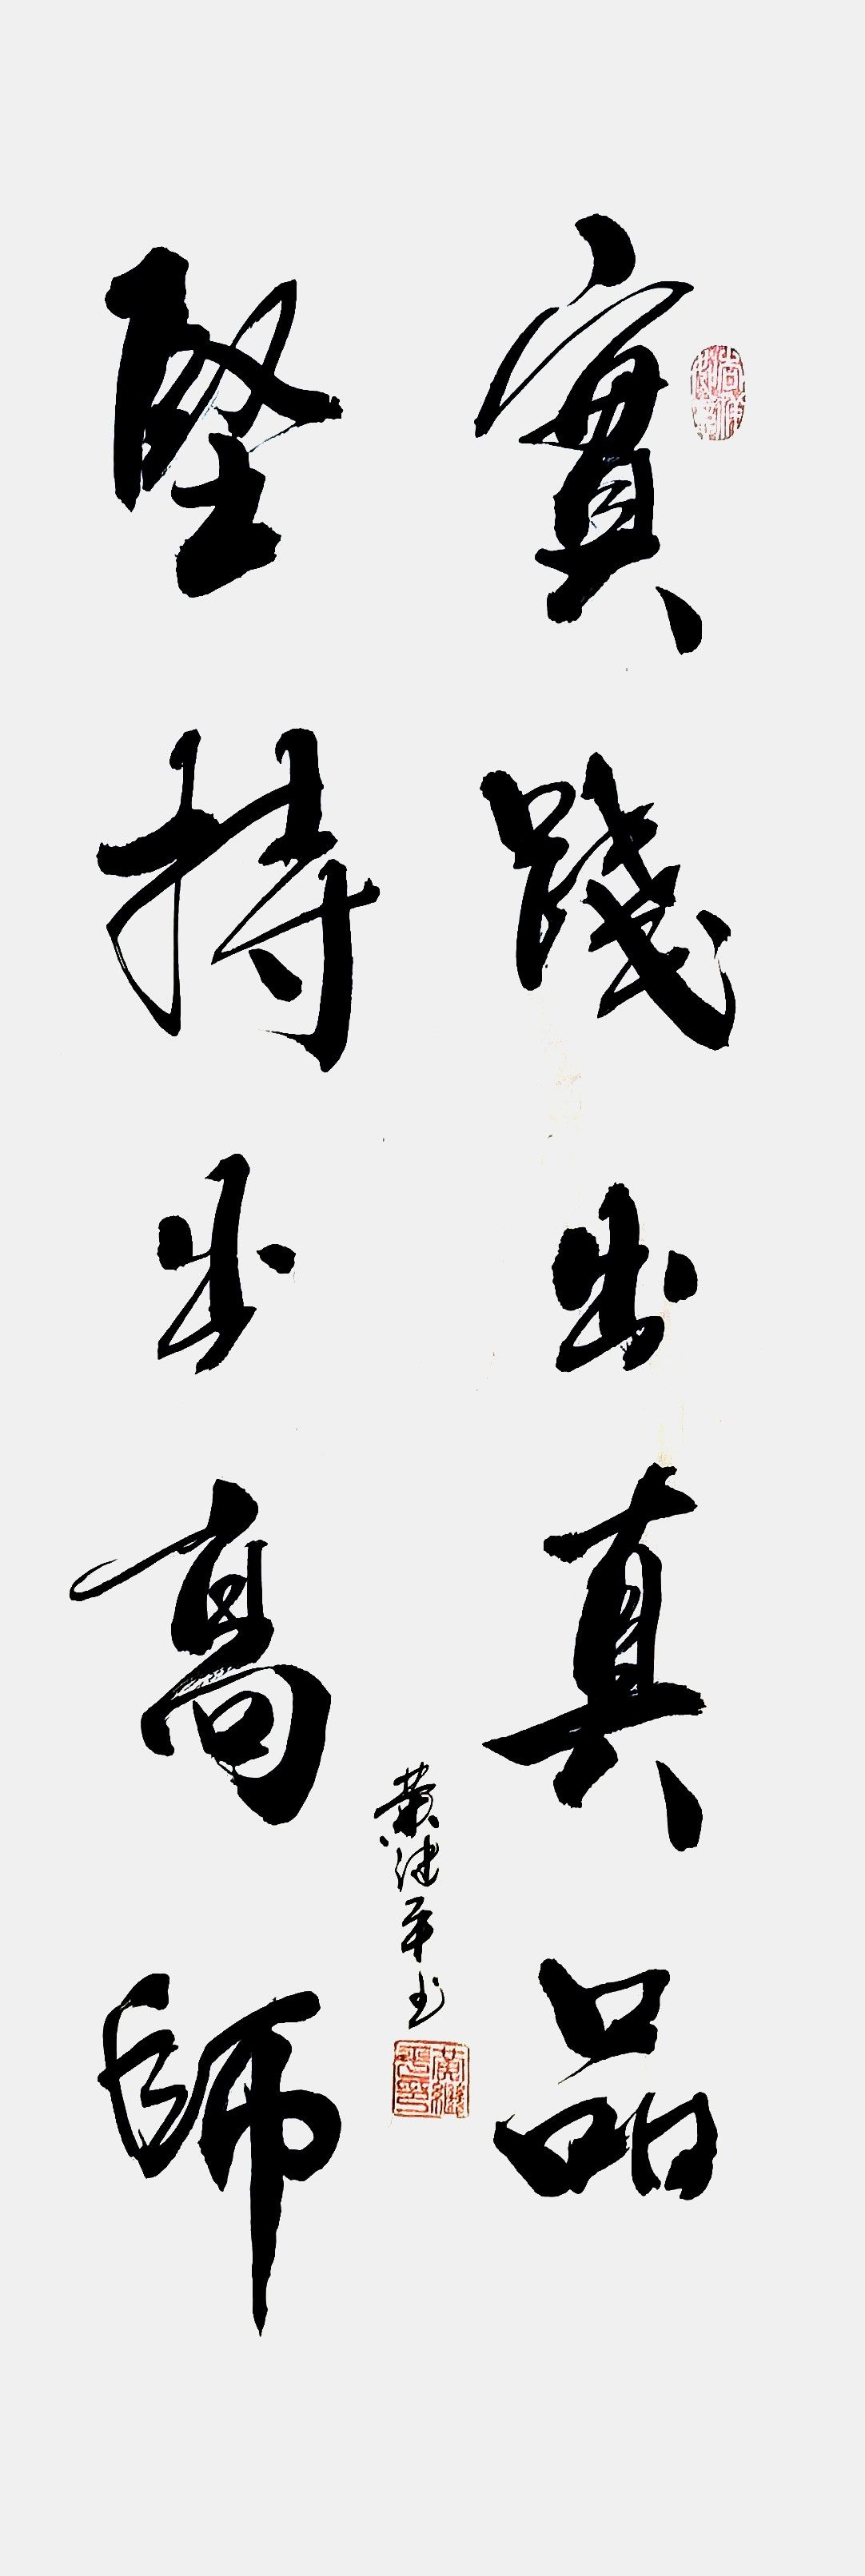 實踐出真品
堅持出高師
黄继平书